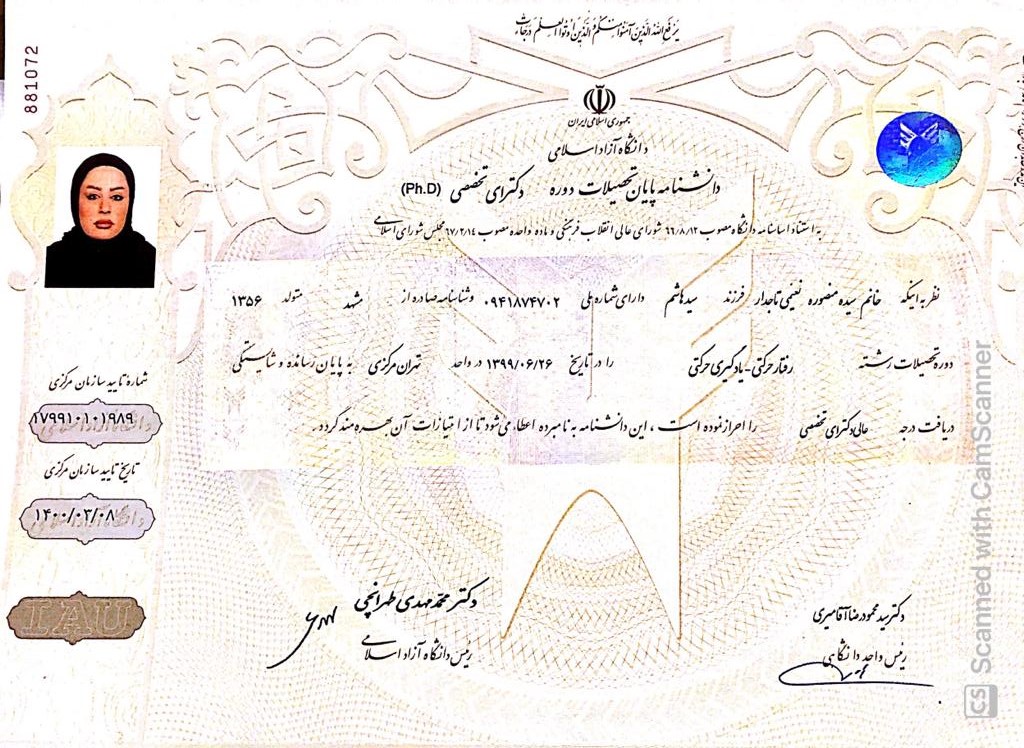 یرفع الله الذین آمنوا منکم و الذین اوتوا العلم درجات
جمهوری اسلامی ایران
دانشگاه آزاد اسلامی
دانشنامه پایان تحصیلات دوره دکترای تخصصی (Ph.D)
به استناد اساسنامه دانشگاه مصوب ۶۶/۸/۱۲ شورای عالی انقلاب فرهنگی و ماده واحده مصوب ۶۷/۲/۱۴ مجلس شورای اسلامی
نظر به اینکه خانم سیده منصوره نعیمی تاجدار فرزند سیدهاشم دارای شماره ملی ۰۹۴۱۸۷۴۷۰۲ وشناسنامه صادره از مشهد متولد ۱۳۵۶
دوره تحصیلات رشته رفتار حرکتی-یادگیری حرکتی را در تاریخ ۱۳۹۹/۰۶/۲۶ در واحد تهران مرکزی به پایان رسانده و شایستگی
دریافت درجه عالی دکترای تخصصی را احراز نموده است ، این دانشنامه به نامبرده اعطاء می شود تا از امتیازات آن بهره مند گردد.
دکتر سید محمودرضا آقامیری
رئیس واحد دانشگاهی
دکتر محمد مهدی طهرانچی
رئیس دانشگاه آزاد اسلامی
881072
شماره تایید سازمان مرکزی
۱۷۹۹۱۰۱۰۱۹۸۹
تاریخ تایید سازمان مرکزی
۱۴۰۰/۰۳/۰۸
IAU
CS Scanned with CamScanner